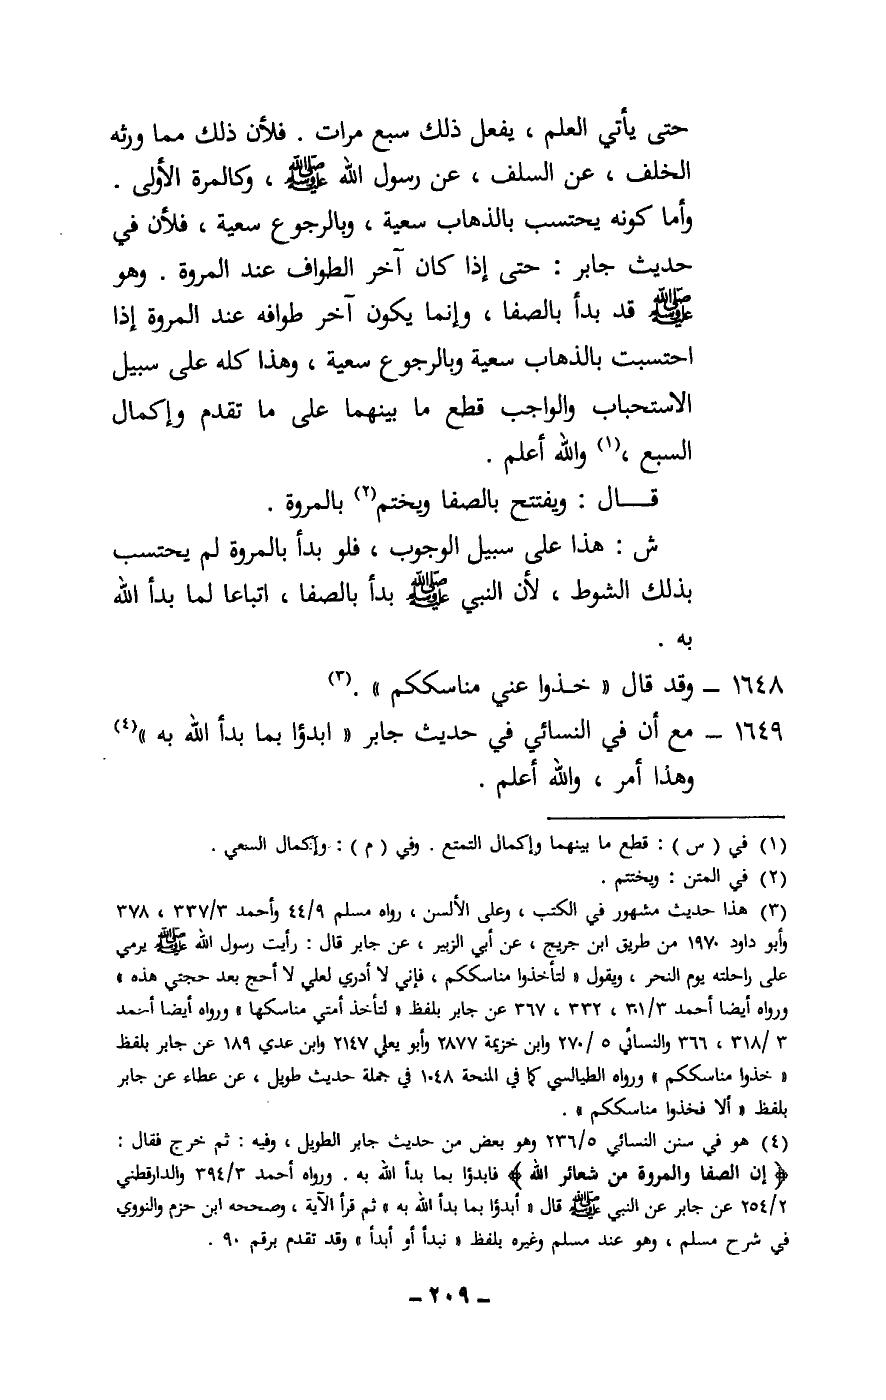 حتى يأتي العلم ، يفعل ذلك سبع مرات . فلأن ذلك مما ورثه
الخلف ، عن السلف ، عن رسول الله ﷺ ، وكالمرة الأولى .
وأما كونه يحتسب بالذهاب سعية ، وبالرجوع سعية ، فلأن في
حديث جابر : حتى إذا كان آخر الطواف عند المروة . وهو
ﷺ قد بدأ بالصفا ، وإنما يكون آخر طوافه عند المروة إذا
احتسبت بالذهاب سعية وبالرجوع سعية ، وهذا كله على سبيل
الاستحباب والواجب قطع ما بينهما على ما تقدم وإكمال
السبع ،(١) والله أعلم .
قـــال : ويفتتح بالصفا ويختم(٢) بالمروة .
ش : هذا على سبيل الوجوب ، فلو بدأ بالمروة لم يحتسب
بذلك الشوط ، لأن النبي ﷺ بدأ بالصفا ، اتباعا لما بدأ الله
به .
١٦٤٨ – وقد قال « خـذوا عني مناسككم » .(٣)
١٦٤٩ – مع أن في النسائي في حديث جابر « ابدؤا بما بدأ الله به »(٤)
وهذا أمر ، والله أعلم .
(١) في ( س ) : قطع ما بينهما وإكمال التمتع . وفي ( م ) : وإكمال السعي .
(٢) في المتن : ويختتم .
(٣) هذا حديث مشهور في الكتب ، وعلى الألسن ، رواه مسلم ٤٤/٩ وأحمد ٣٣٧/٣ ، ٣٧٨
وأبو داود ١٩٧٠ من طريق ابن جريج ، عن أبي الزبير ، عن جابر قال : رأيت رسول الله ﷺ يرمي
على راحلته يوم النحر ، ويقول « لتأخذوا مناسككم ، فإني لا أدري لعلي لا أحج بعد حجتي هذه »
ورواه أيضا أحمد ٣٠١/٣ ، ٣٣٢ ، ٣٦٧ عن جابر بلفظ « لتأخذ أمتي مناسكها » ورواه أيضا أحمد
٣١٨/ ٣ ، ٣٦٦ والنسائي ٥ /٢٧٠ وابن خزيمة ٢٨٧٧ وأبو يعلى ٢١٤٧ وابن عدي ١٨٩ عن جابر بلفظ
« خذوا مناسككم » ورواه الطيالسي كما في المنحة ١٠٤٨ في جملة حديث طويل ، عن عطاء عن جابر
بلفظ « ألا فخذوا مناسككم » .
(٤) هو في سنن النسائي ٢٣٦/٥ وهو بعض من حديث جابر الطويل ، وفيه : ثم خرج فقال :
﴿ إن الصفا والمروة من شعائر الله ﴾ فابدؤا بما بدأ الله به . ورواه أحمد ٣٩٤/٣ والدارقطني
٢٥٤/٢ عن جابر عن النبي ﷺ قال « أبدؤا بما بدأ الله به » ثم قرأ الآية ، وصححه ابن حزم والنووي
في شرح مسلم ، وهو عند مسلم وغيره بلفظ « نبدأ أو أبدأ » وقد تقدم برقم ٩٠ .
– ٢٠٩ –